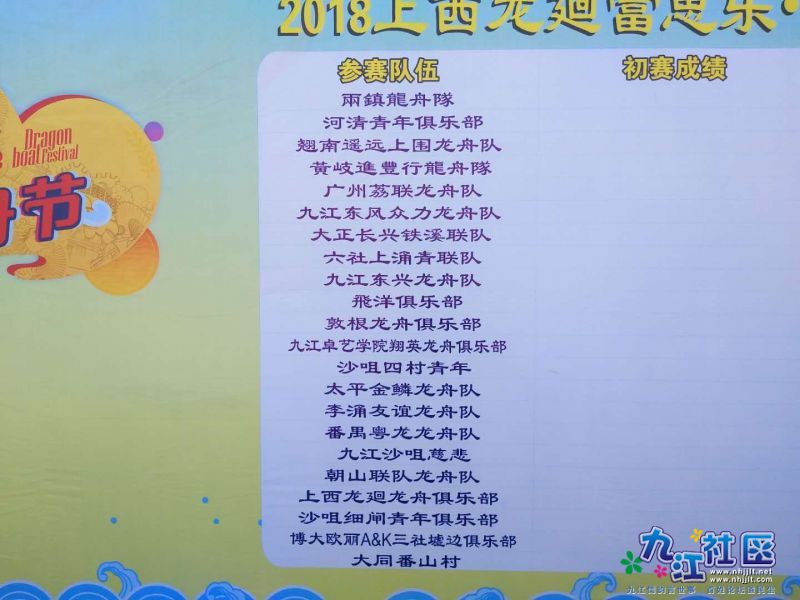 2018上西龙廻富思乐·
参赛队伍
初赛成绩
兩鎮龍舟隊
河清青年俱乐部
翘南遥远上围龙舟队
黄岐進豊行龍舟隊
广州荔联龙舟队
九江东风众力龙舟队
大正长兴铁溪联队
六社上涌青联队
九江东兴龙舟队
飛洋俱乐部
敦根龙舟俱乐部
九江卓艺学院翔英龙舟俱乐部
沙咀四村青年
太平金鳞龙舟队
李涌友谊龙舟队
番禺粤龙龙舟队
九江沙咀慈悲
朝山联队龙舟队
上西龙廻龙舟俱乐部
沙咀细闸青年俱乐部
博大欧丽A&K三社墟边俱乐部
大同番山村
Dragon
boat Festival
舟节
九江社区
www.nhjjlt.net
www.nhjjlt.com